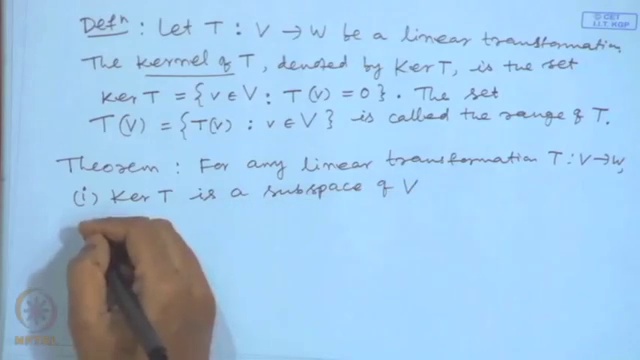 © CET
I.I.T. KGP
Defⁿ : Let T : V → W be a linear transformation
The Kernel of T, denoted by Ker T, is the set
Ker T = {v ∈ V : T(v) = 0}. The set
T(V) = {T(v) : v ∈ V} is called the range of T.
Theorem : For any linear transformation T : V → W,
(i) Ker T is a subspace of V
NPTEL